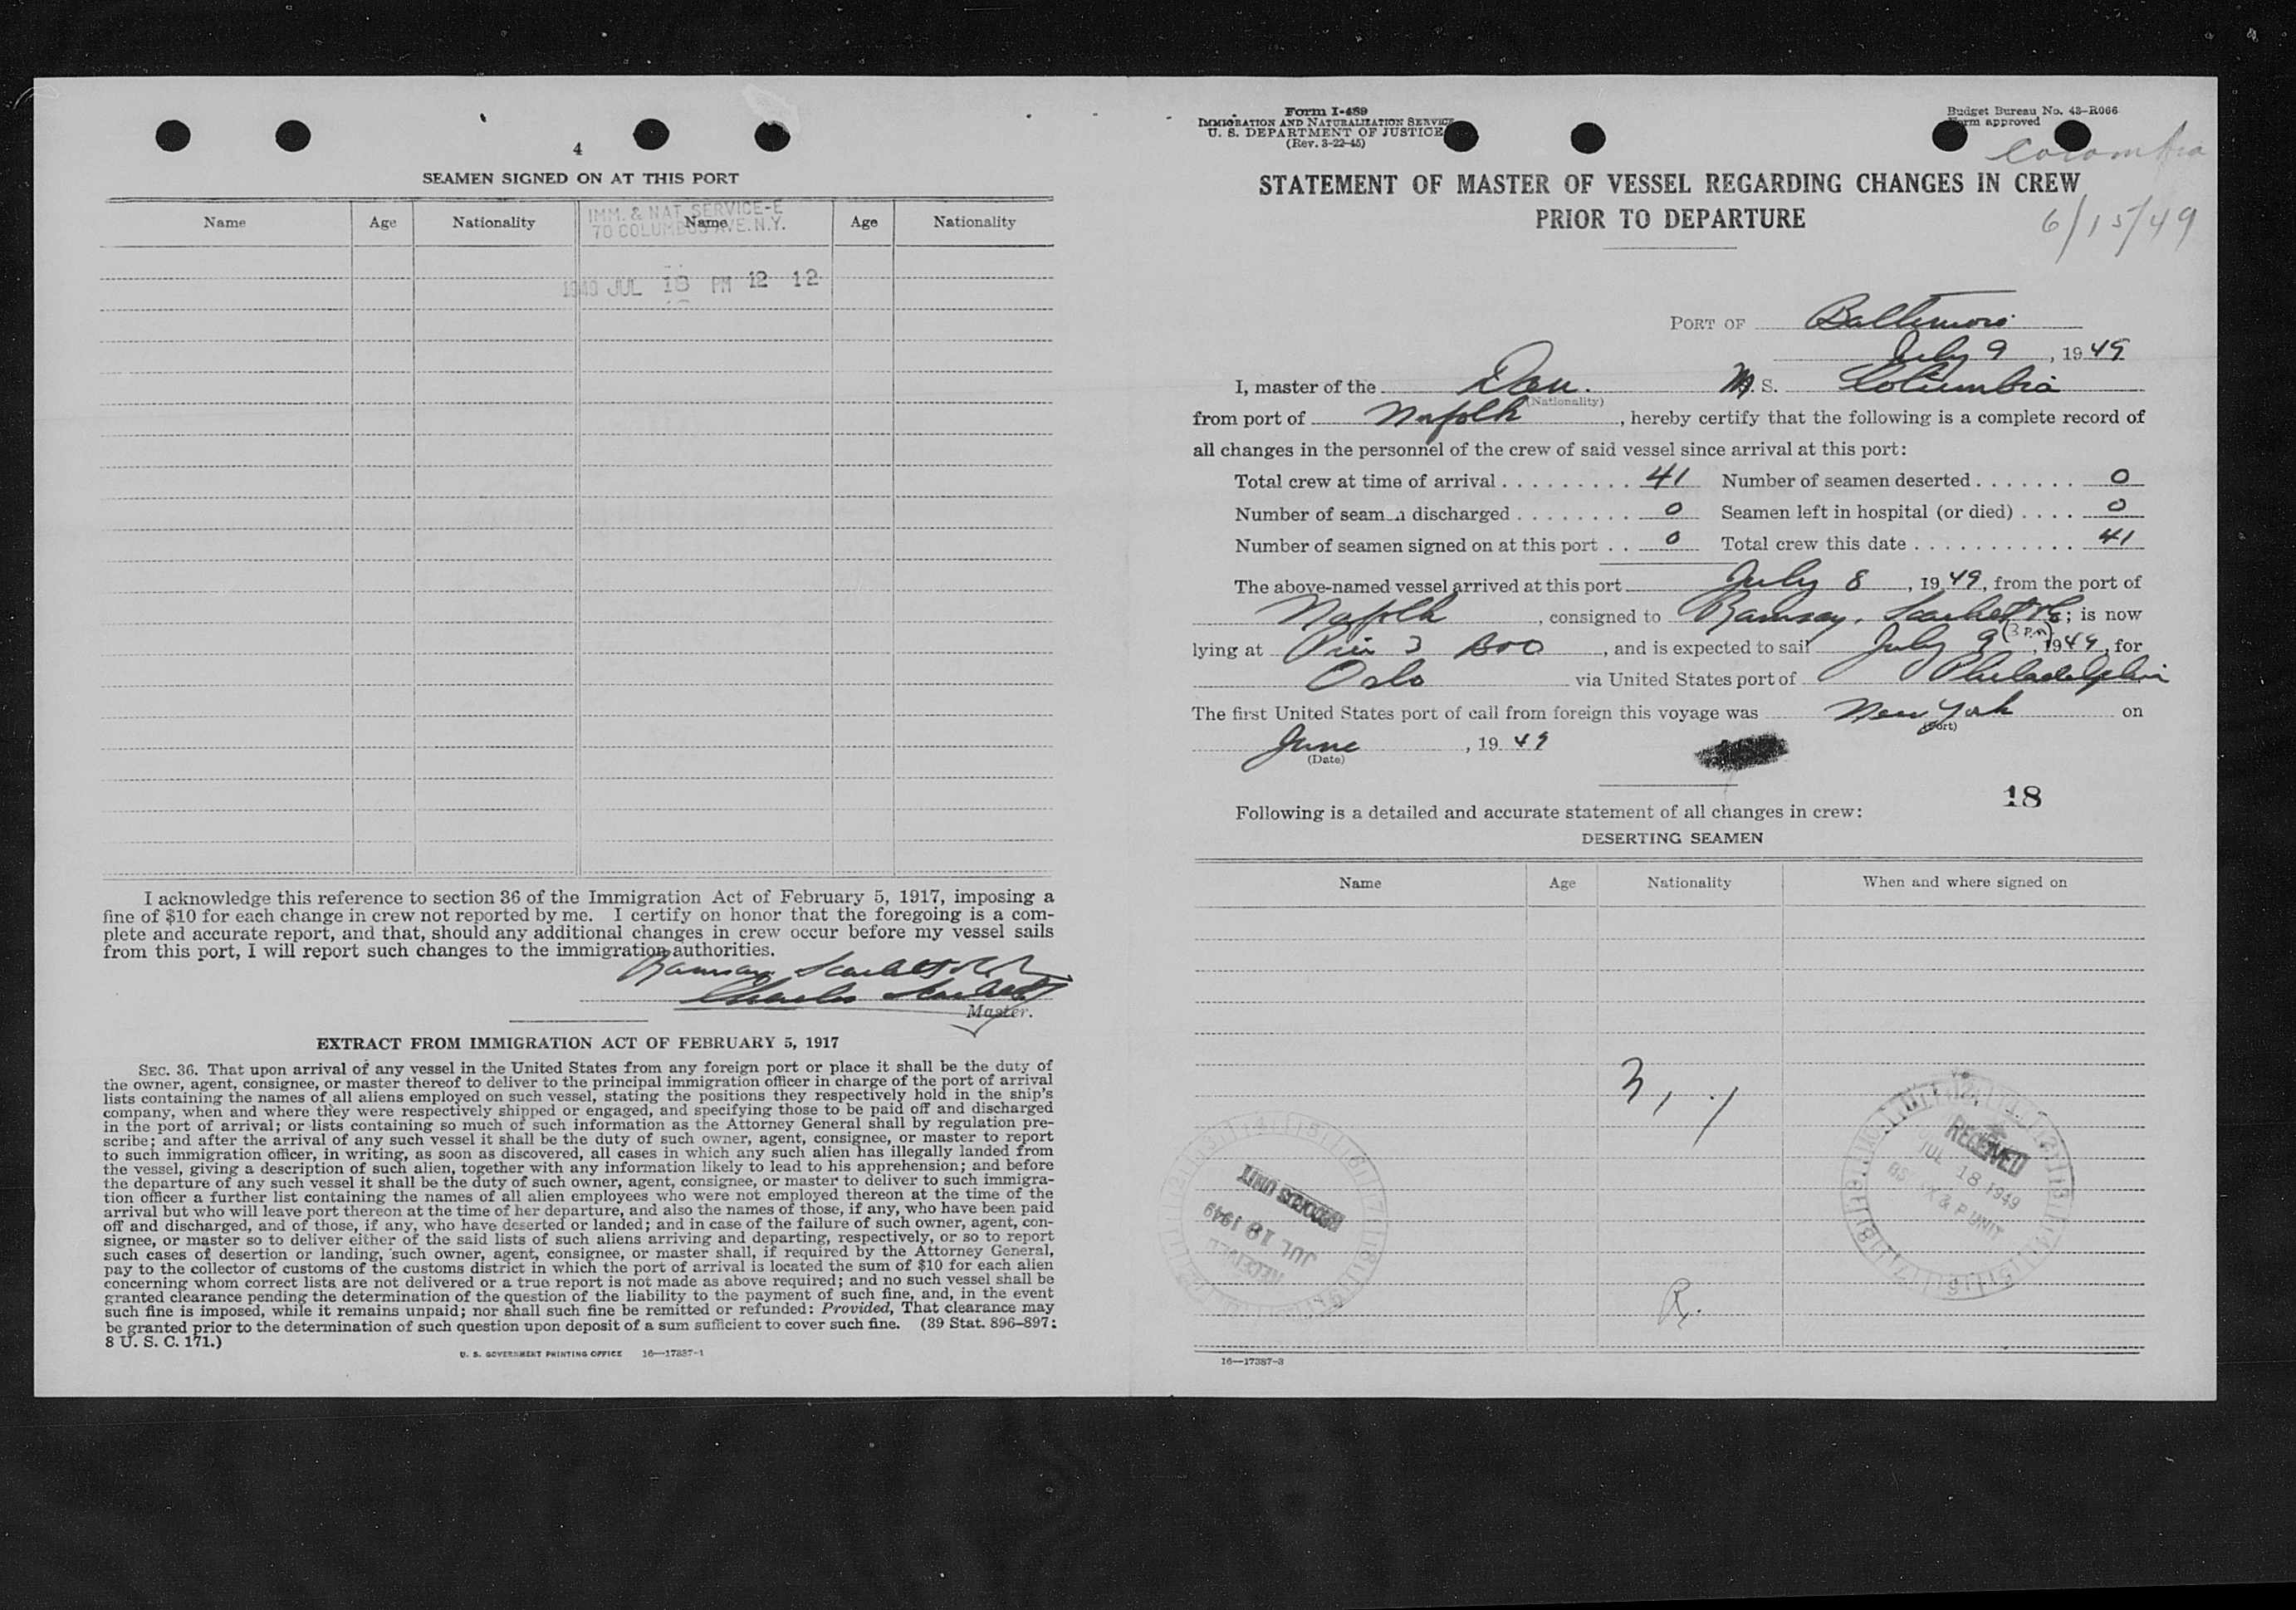 4
SEAMEN SIGNED ON AT THIS PORT
Name Age Nationality Name Age Nationality
IMM. & NAT. SERVICE-E
70 COLUMBUS AVE. N.Y.
JUL 18 PM 12 12
I acknowledge this reference to section 36 of the Immigration Act of February 5, 1917, imposing a
fine of $10 for each change in crew not reported by me. I certify on honor that the foregoing is a com-
plete and accurate report, and that, should any additional changes in crew occur before my vessel sails
from this port, I will report such changes to the immigration authorities.
Ramsay Scarlett
Charles Scarlett
Master.
EXTRACT FROM IMMIGRATION ACT OF FEBRUARY 5, 1917
SEC. 36. That upon arrival of any vessel in the United States from any foreign port or place it shall be the duty of
the owner, agent, consignee, or master thereof to deliver to the principal immigration officer in charge of the port of arrival
lists containing the names of all aliens employed on such vessel, stating the positions they respectively hold in the ship's
company, when and where they were respectively shipped or engaged, and specifying those to be paid off and discharged
in the port of arrival; or lists containing so much of such information as the Attorney General shall by regulation pre-
scribe; and after the arrival of any such vessel it shall be the duty of such owner, agent, consignee, or master to report
to such immigration officer, in writing, as soon as discovered, all cases in which any such alien has illegally landed from
the vessel, giving a description of such alien, together with any information likely to lead to his apprehension; and before
the departure of any such vessel it shall be the duty of such owner, agent, consignee, or master to deliver to such immigra-
tion officer a further list containing the names of all alien employees who were not employed thereon at the time of the
arrival but who will leave port thereon at the time of her departure, and also the names of those, if any, who have been paid
off and discharged, and of those, if any, who have deserted or landed; and in case of the failure of such owner, agent, con-
signee, or master so to deliver either of the said lists of such aliens arriving and departing, respectively, or so to report
such cases of desertion or landing, such owner, agent, consignee, or master shall, if required by the Attorney General,
pay to the collector of customs of the customs district in which the port of arrival is located the sum of $10 for each alien
concerning whom correct lists are not delivered or a true report is not made as above required; and no such vessel shall be
granted clearance pending the determination of the question of the liability to the payment of such fine, and, in the event
such fine is imposed, while it remains unpaid; nor shall such fine be remitted or refunded: Provided, That clearance may
be granted prior to the determination of such question upon deposit of a sum sufficient to cover such fine. (39 Stat. 896–897;
8 U. S. C. 171.)
U. S. GOVERNMENT PRINTING OFFICE 16—17387-1
Form I-489
IMMIGRATION AND NATURALIZATION SERVICE
U. S. DEPARTMENT OF JUSTICE
(Rev. 3-22-45)
Budget Bureau No. 43-R066
Form approved
Colombia
6/15/49
STATEMENT OF MASTER OF VESSEL REGARDING CHANGES IN CREW
PRIOR TO DEPARTURE
PORT OF Baltimore
July 9, 1949
I, master of the Dan. M. S. Columbia
(Nationality)
from port of Norfolk, hereby certify that the following is a complete record of
all changes in the personnel of the crew of said vessel since arrival at this port:
Total crew at time of arrival 41 Number of seamen deserted 0
Number of seamen discharged 0 Seamen left in hospital (or died) 0
Number of seamen signed on at this port 0 Total crew this date 41
The above-named vessel arrived at this port July 8, 1949, from the port of
Norfolk, consigned to Ramsay, Scarlett & Co; is now
lying at Pier 3 B&O, and is expected to sail July 9 (3 P.M), 1949, for
Oslo via United States port of Philadelphia
The first United States port of call from foreign this voyage was New York on
(Port)
June, 1949
(Date)
18
Following is a detailed and accurate statement of all changes in crew:
DESERTING SEAMEN
Name Age Nationality When and where signed on
RECEIVED
JUL 18 1949
& P UNIT
RECORDS UNIT
JUL 18 1949
RECEIVED
R.
16—17387-3